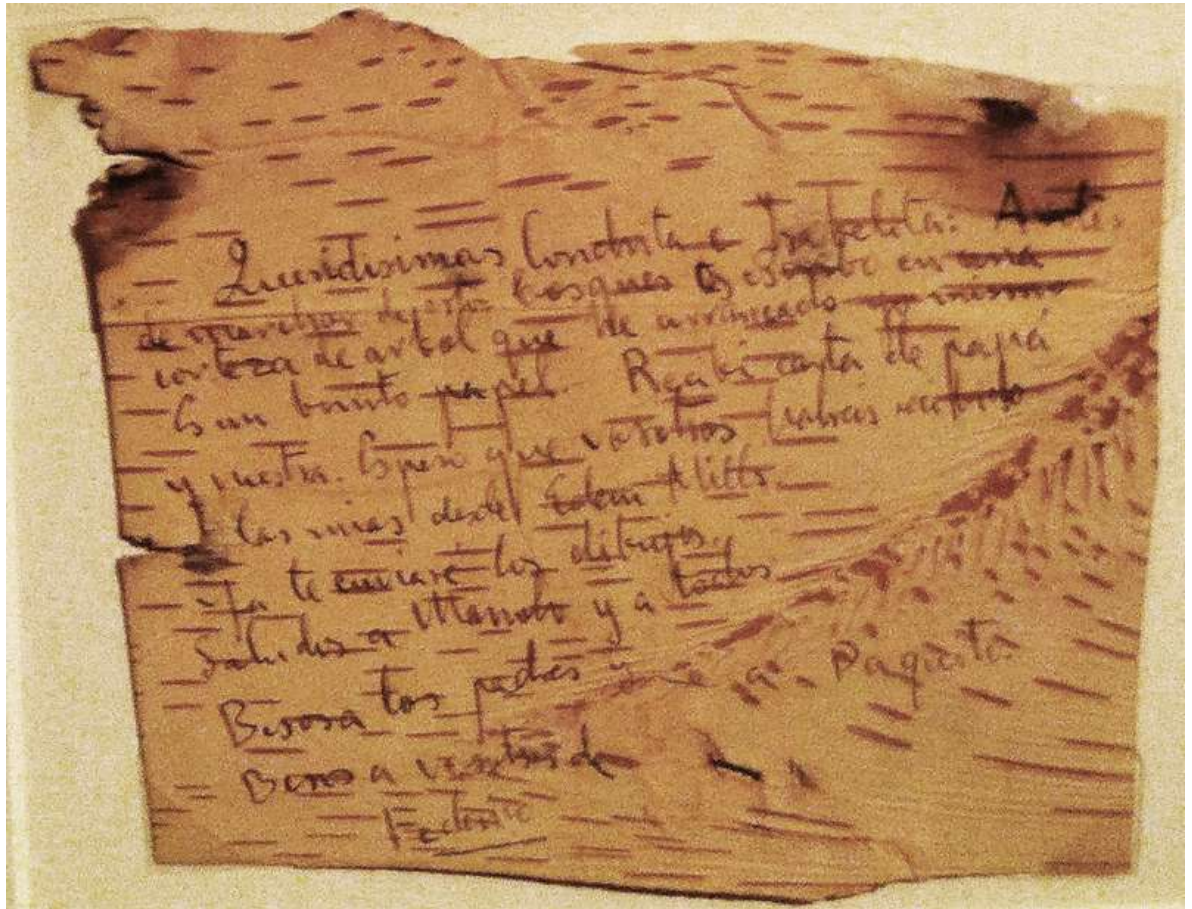 Queridisimas Conchita e Isabelita: Antes
de marchar de estos bosques os escribo en una
corteza de arbol que he arrancado yo mismo
Es un bonito papel. Recibí carta de papá
y vuestra. Espero que vosotros habreis recibido
las mias desde Edem Mills
Ya te enviaré los dibujos.
Saludos a Manolo y a todos
Besos a los padres y a Paquita
Besos a vosotras de
Federico